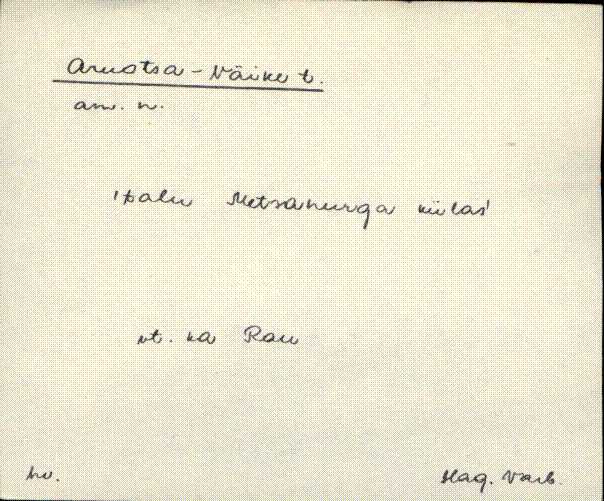 Aruotsa-Väike t.
am. n.
'talu Metsanurga külas'
vt. ka Rau
hv.
Hag. Varb.